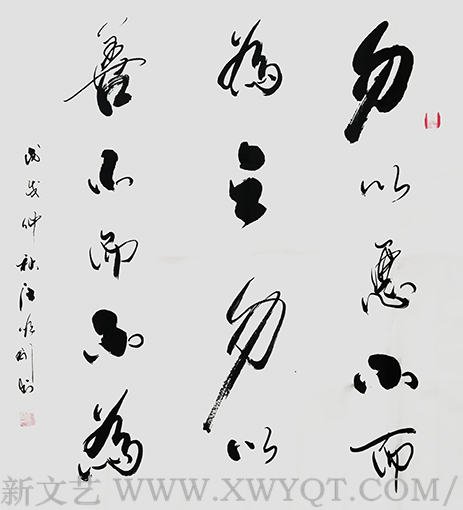 勿以惡小而
為之勿以
善小而不為
戊戌仲秋汪
新文艺 WWW.XWYQT.COM/